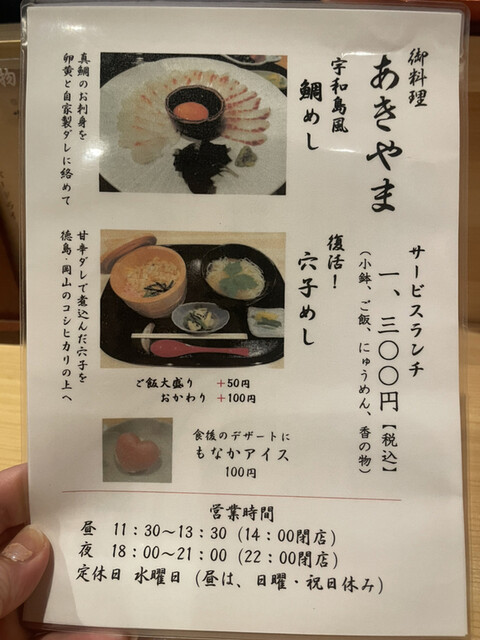 御料理
あきやま
サービスランチ
一、三〇〇円【税込】
(小鉢、ご飯、にゅうめん、香の物)
宇和島風
鯛めし
真鯛のお刺身を
卵黄と自家製ダレに絡めて
復活！
穴子めし
甘辛ダレで煮込んだ穴子を
徳島・岡山のコシヒカリの上へ
ご飯大盛り +50円
おかわり +100円
食後のデザートに
もなかアイス
100円
営業時間
昼 11:30～13:30 (14:00閉店)
夜 18:00～21:00 (22:00閉店)
定休日 水曜日 (昼は、日曜・祝日休み)
物